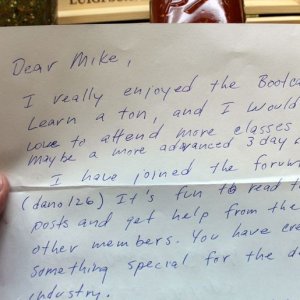 LUIGI
Dear Mike,
I really enjoyed the Bootc
Learn a ton, and I would
love to attend more classes
maybe a more advanced 3 day
I have joined the forum
(dano126) It's fun to read t
posts and get help from the
other members. You have cre
something special for the d
industry.